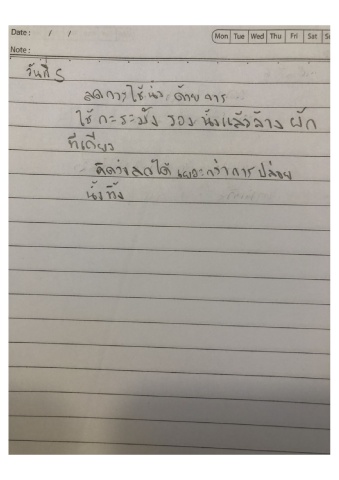 Date : / /
Mon Tue Wed Thu Fri Sat S
Note :
วันที่ 5
ลดการใช้น้ำ ด้วยการ
ใช้ กะระมัง รอง น้ำแล้วล้าง ผัก
ทีเดียว
คิดว่าลดได้ เยอะกว่าการ ปล่อย
น้ำทิ้ง